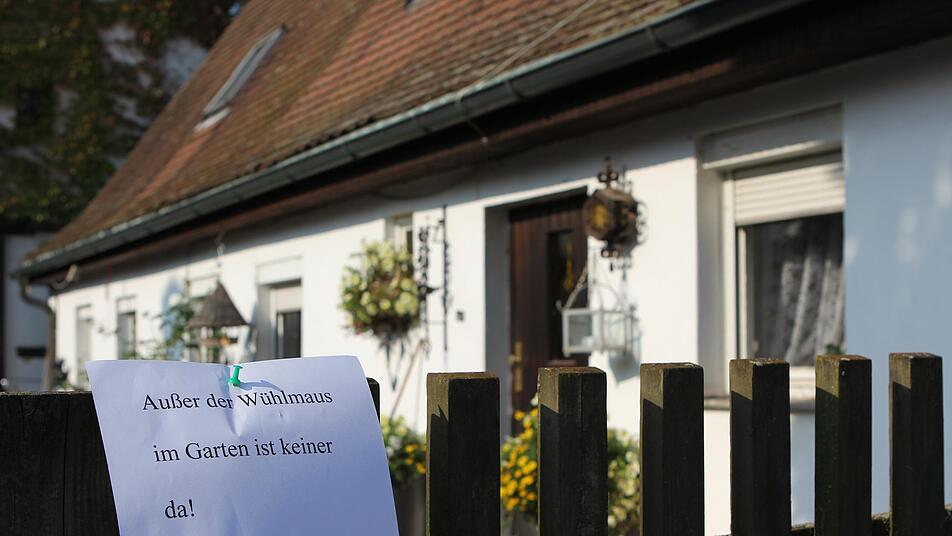 Außer der Wühlmaus
im Garten ist keiner
da!